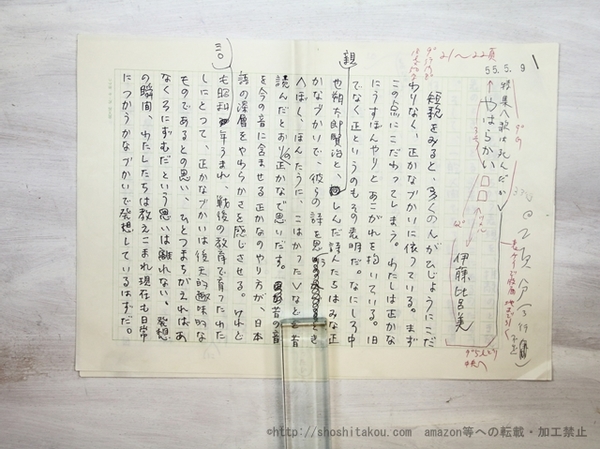 55.5.9
21〜22頁
特集〈歌は死んだか〉
やはらかい□□
伊藤比呂美
短歌をみると、多くのひとがひじょうにこだ
わりなく、正かなづかいに依っている。まず
この点にこだわってしまう。わたしは正かな
にうすぼんやりとあこがれを抱いている。旧
でなく正というのもその表明だ。なにしろ中
也朔太郎賢治と、親しんだ詩人たちはみな正
かなづかいで、彼らの詩を思うとき
〈ほし、ほんたうに、こはかった〉などと昔
読んだとおりの正かなで思いだす。昔の音
を今の音に含ませる正かなのやり方が、日本
語の深層をやわらかさを感じさせる。けれど
も昭和三〇年うまれ、戦後の教育で育ったわた
しにとって、正かなづかいは後天的趣味的な
ものであるとの思い、ひとつまちがえればあ
なくろにずむだという思いは離れない。発想
の瞬間、わたしたちは教えこまれ現在も日常
につかうかなづかいで発想しているはずだ。
©http://shoshitakou.com amazon等への転載・加工禁止